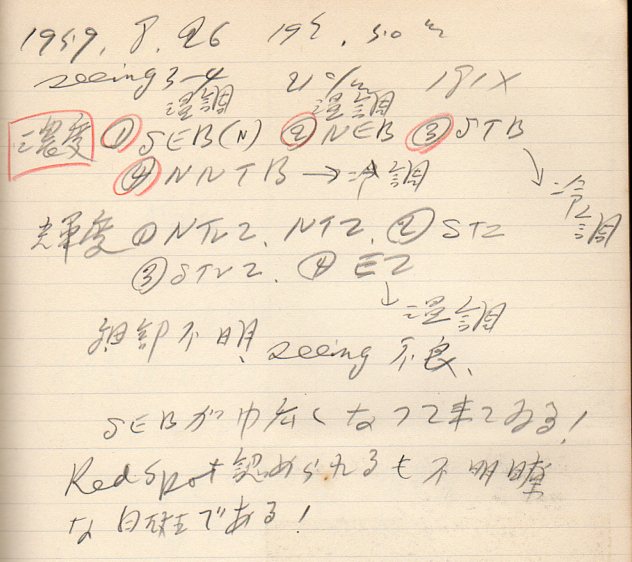 1959. 8. 26 19h. 50m
seeing 3-4 21cm 181X
温調 温調
濃度 ① SEB(N) ② NEB ③ STB
④ NNTB → 冷調
冷調
輝度 ① NTrZ. NTZ. ② STZ
③ STrZ. ④ EZ
温調
細部不明、seeing 不良、
SEBが巾広くなって来てゐる!
Red Spot 認められるも不明瞭
な白班である!